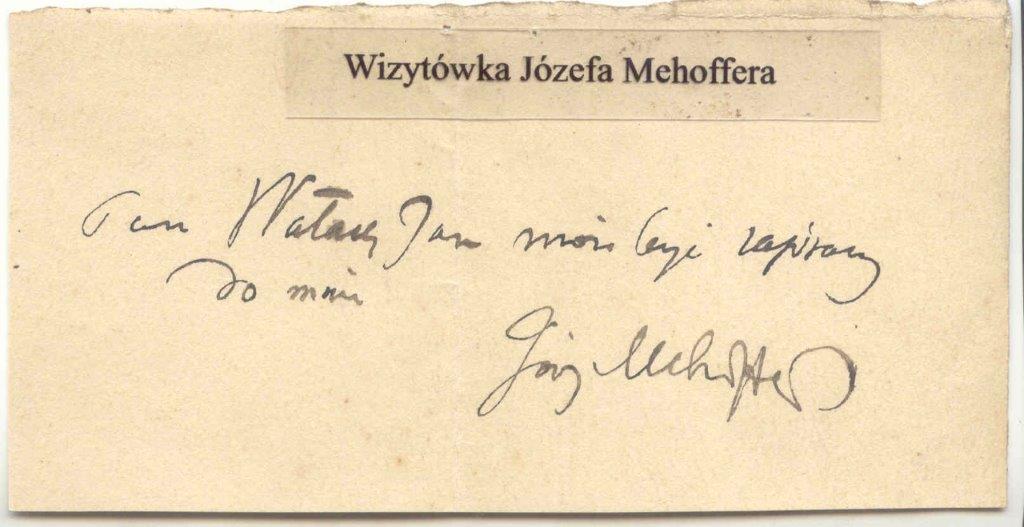 Wizytówka Józefa Mehoffera
Pan Wałach Jan może być zapisany
do mnie
Józef Mehoffer